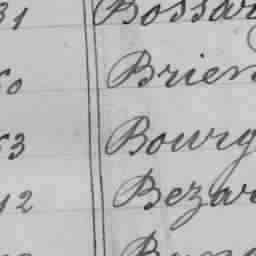 31 Bossar
50 Brien
53 Bourg
12 Bezar